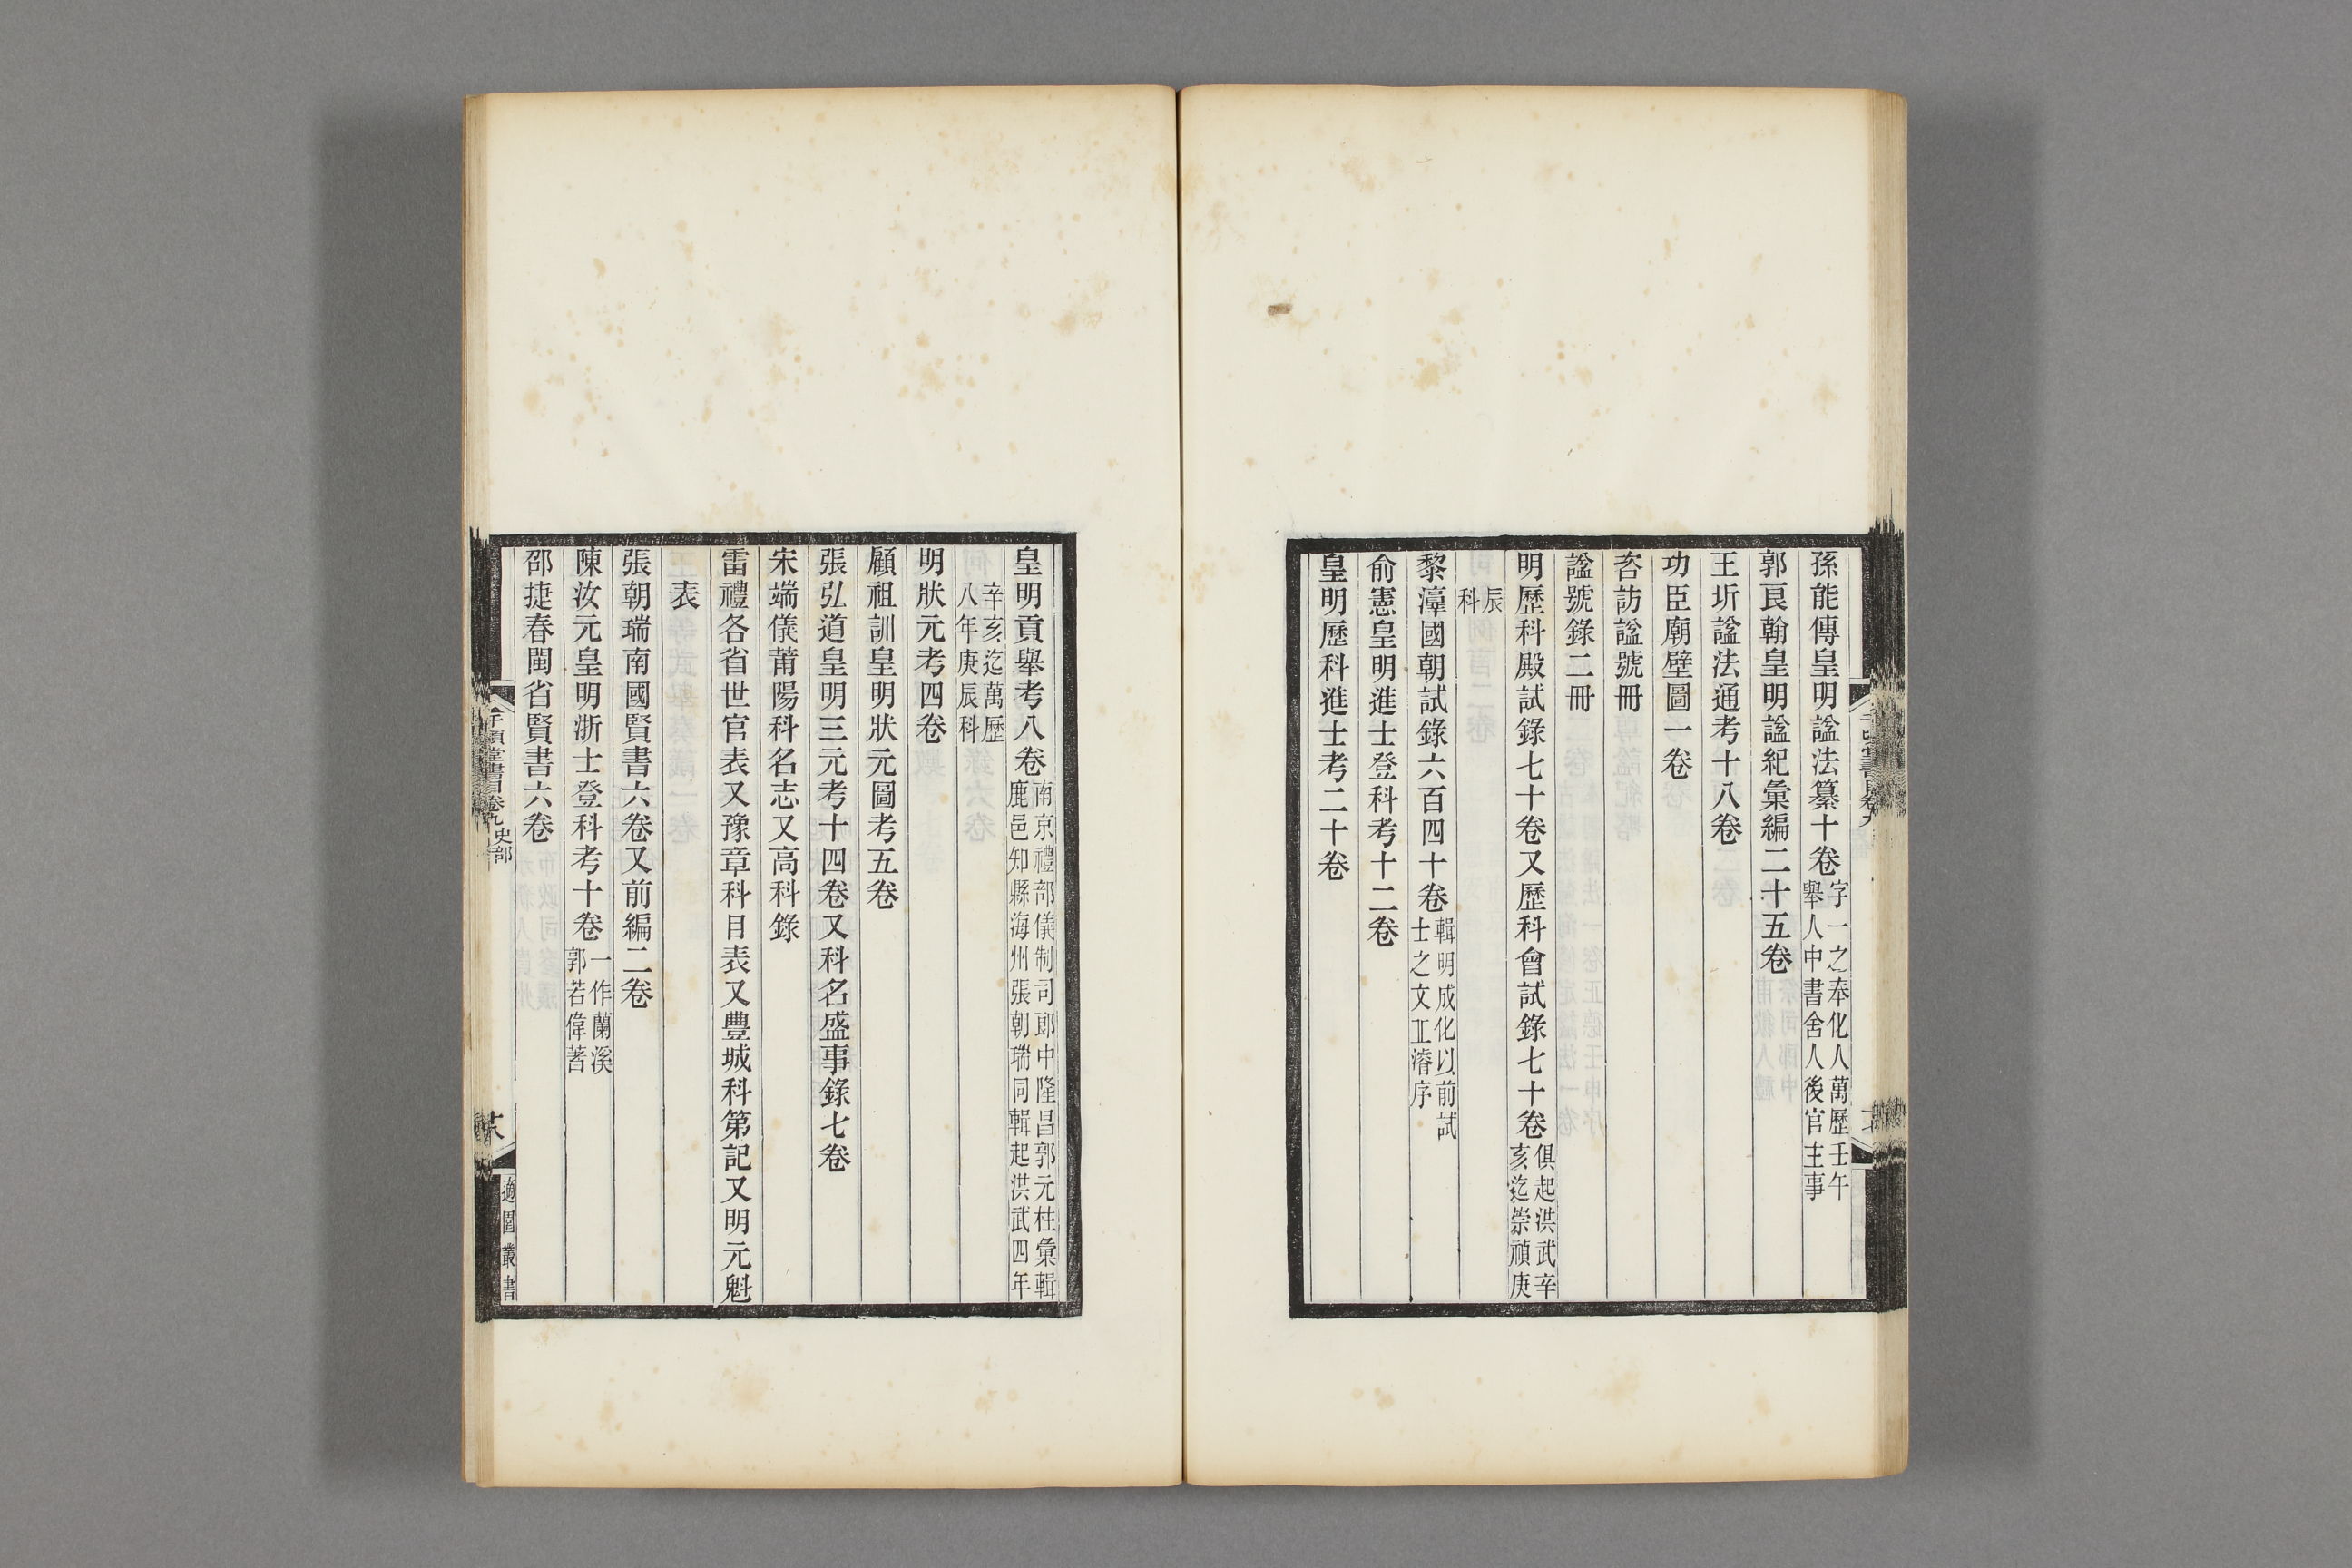 孫能傳皇明諡法纂十卷字一之奉化人萬歷壬午舉人中書舍人後官主事
郭良翰皇明諡紀彙編二十五卷
王圻諡法通考十八卷
功臣廟壁圖一卷
咨訪諡號冊
諡號錄二冊
明歷科殿試錄七十卷又歷科會試錄七十卷俱起洪武辛亥迄崇禎庚
辰科
黎淳國朝試錄六百四十卷輯明成化以前試士之文丘濬序
俞憲皇明進士登科考十二卷
皇明歷科進士考二十卷
皇明貢舉考八卷南京禮部儀制司郎中隆昌郭元柱彙輯鹿邑知縣海州張朝瑞同輯起洪武四年
辛亥迄萬歷八年庚辰科
明狀元考四卷
顧祖訓皇明狀元圖考五卷
張弘道皇明三元考十四卷又科名盛事錄七卷
宋端儀莆陽科名志又高科錄
雷禮各省世官表又豫章科目表又豐城科第記又明元魁
表
張朝瑞南國賢書六卷又前編二卷
陳汝元皇明浙士登科考十卷一作蘭溪郭若偉著
邵捷春閩省賢書六卷
千頃堂書目卷九 史部
適園叢書